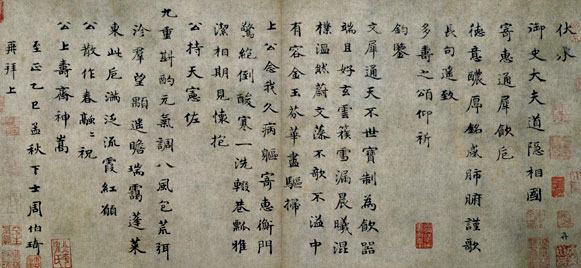 伏承
御史大夫道隱相國
寄惠通犀飲卮
德意醲厚銘感肺腑謹歌
長句遙致
多壽之頌仰祈
鈞鑒
文犀通天不世寶制為飲器
端且好玄雲簇雪漏晨曦混
樸溫然蔚文藻不歌不溢中
有容金玉芬華盡驅掃
上公念我久病軀寄惠衡門
驚絕倒酸寒一洗輟巷瓢雅
潔相期見懷抱
公持天憲佐
九重斟酌元氣調八風包荒弭
沴羣望顒遙瞻瑞靄蓬萊
東此卮滿泛流霞紅願
公散作春融々祝
公上壽齊神嵩
至正乙巳孟秋下士周伯琦
再拜上